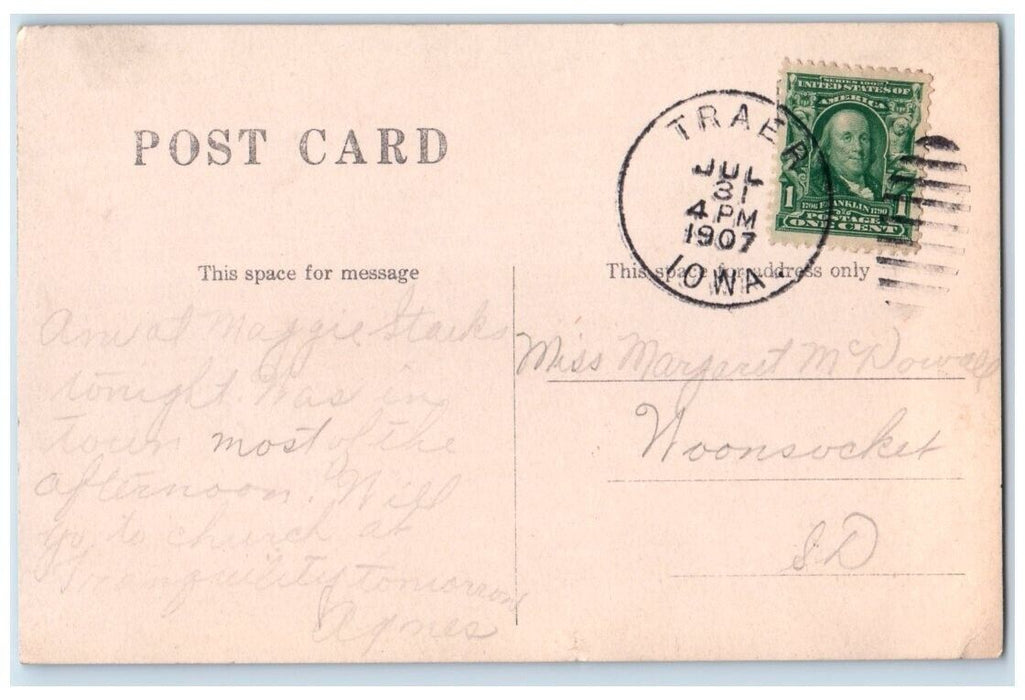 POST CARD
TRAER
JUL
31
4 PM
1907
IOWA.
SERIES 1902
UNITED STATES OF
AMERICA
1 1
1706 FRANKLIN 1790
POSTAGE
ONE CENT
This space for message
Am at Maggie Starks
tonight. Was in
town most of the
afternoon. Will
go to church at
Tranquility tomorrow
Agnes
This space for address only
Miss Margaret McDowall
Woonsocket
SD